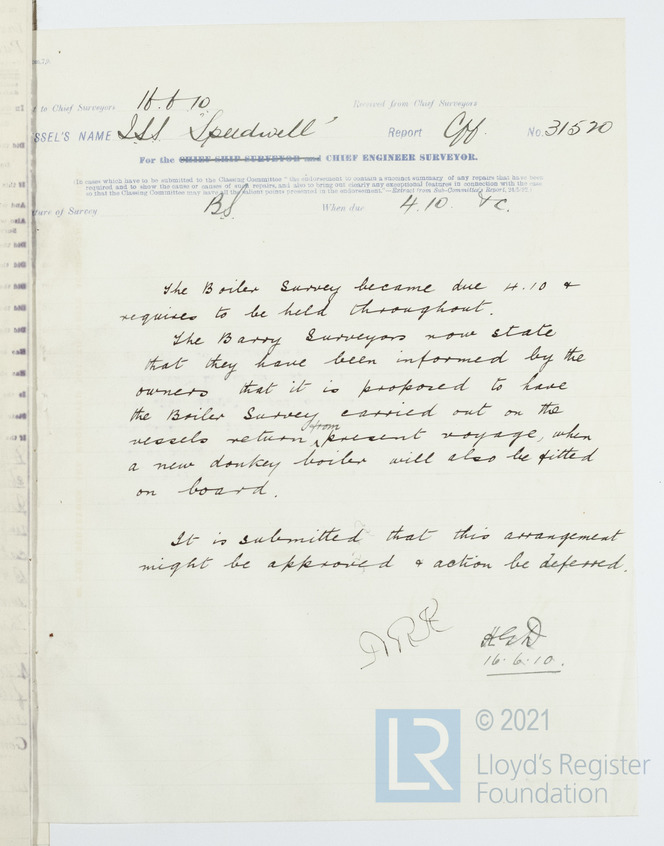 to Chief Surveyors 16.6.10 Received from Chief Surveyors
VESSEL'S NAME "Speedwell" Report Cff. No. 31520
For the CHIEF SHIP SURVEYOR and CHIEF ENGINEER SURVEYOR.
(In cases which have to be submitted to the Classing Committee "the endorsement to contain a succinct summary of any repairs that have been
required and to show the cause or causes of such repairs, and also to bring out clearly any exceptional features in connection with the case
so that the Classing Committee may have all the salient points presented in the endorsement."—Extract from Sub-Committee's Report,
Nature of Survey BS. When due 4.10. &c.
The Boiler Survey became due 4.10 &
requires to be held throughout.
The Barry Surveyors now state
that they have been informed by the
owners that it is proposed to have
the Boiler Survey carried out on the
vessels return from present voyage, when
a new donkey boiler will also be fitted
on board.
It is submitted that this arrangement
might be approved & action be deferred.
16.6.10.
LR © 2021
Lloyd's Register
Foundation